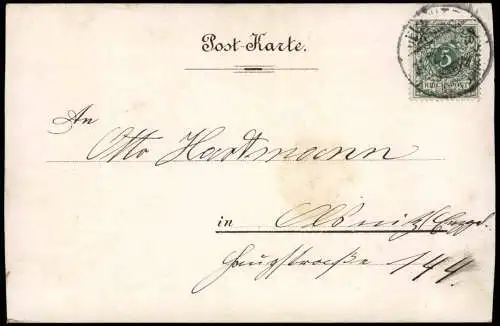 Post-Karte.
5
REICHSPOST
An
Otto Hartmann
in Olsnitz/Erzgeb.
Hauptstraße 144